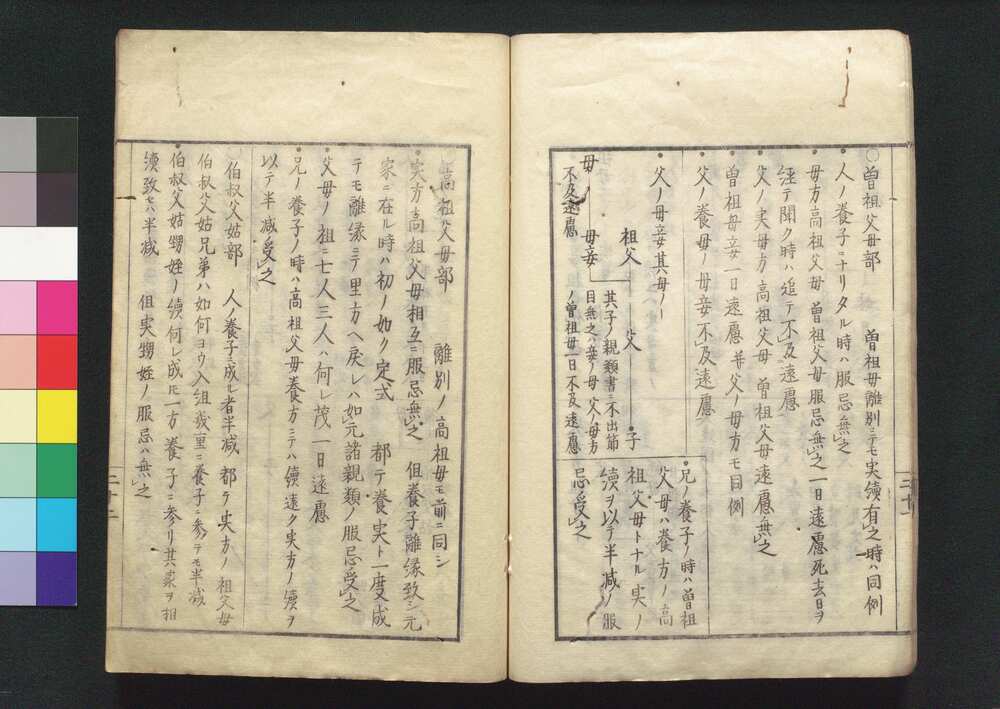 ○曽祖父母部　曽祖母離別ニテモ実續有之時ハ同例
人ノ養子ニナリタル時ハ服忌無之
母方高祖父母 曽祖父母服忌無之一日遠慮死去日ヲ
経テ聞ク時ハ追テ不及遠慮
父ノ実母方高祖父母 曽祖父母遠慮無之
曽祖母妾一日遠慮 并父ノ母方モ同例
父ノ養母ノ母妾不及遠慮
父ノ母妾其母ノ
祖父　父　子
母ノ　母妾
不及遠慮
其子ノ親類書ニ不出節
目無之ハ妾ノ母 父ノ母方
ノ曽祖母一日不及遠慮
兄ノ養子ノ時ハ曽祖
父母ハ養方ノ高
祖父母トナル実ノ
續ヲ以テ半減ノ服
忌受之
高祖父母部　離別ノ高祖母モ前ニ同シ
実方高祖父母相互ニ服忌無之 但養子離縁致シ元
家ニ在ル時ハ初ノ如ク定式　都テ養実ト一度成
テモ離縁ニテ里方ヘ戻レハ如元諸親類ノ服忌受之
父母ノ祖ニ七人三人ハ何レ茂一日遠慮
兄ノ養子ノ時ハ高祖父母養方ニテハ續遠ク実方ノ續ヲ
以テ半減受之
伯叔父姑部　人ノ養子ニ成ル者半減 都テ実方ノ祖父母
伯叔父姑兄弟ハ如何ヨウ入組幾重ニ養子ニ参テモ半減
伯叔父姑甥姪ノ續何レ成トモ一方養子ニ参リ其家ヲ相
續致セハ半減　但実甥姪ノ服忌ハ無之
三十一
三十二